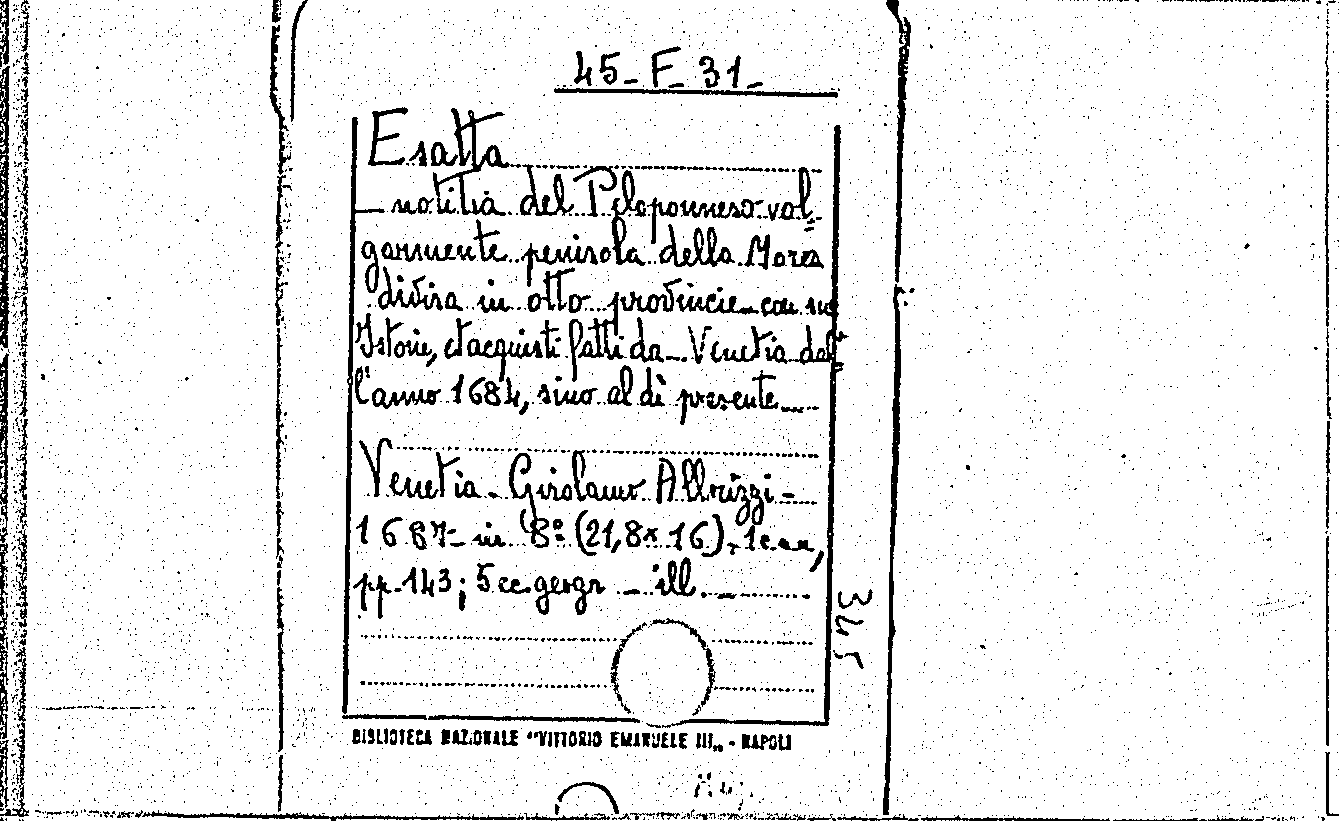 45_F_31_
Esatta
_notitia del Peloponneso vol=
garmente penisola della Morea
divisa in otto provincie_con sue
Istorie, et acquisti fatti da_Venetia dal=
l'anno 1684, sino al dì presente__
Venetia_Girolamo Albrizzi_
1687_in 8º (21,8x16)_1c.n.n,
pp.143; 5cc.geogr _ill._
345
BIBLIOTECA NAZIONALE "VITTORIO EMANUELE III„ - NAPOLI